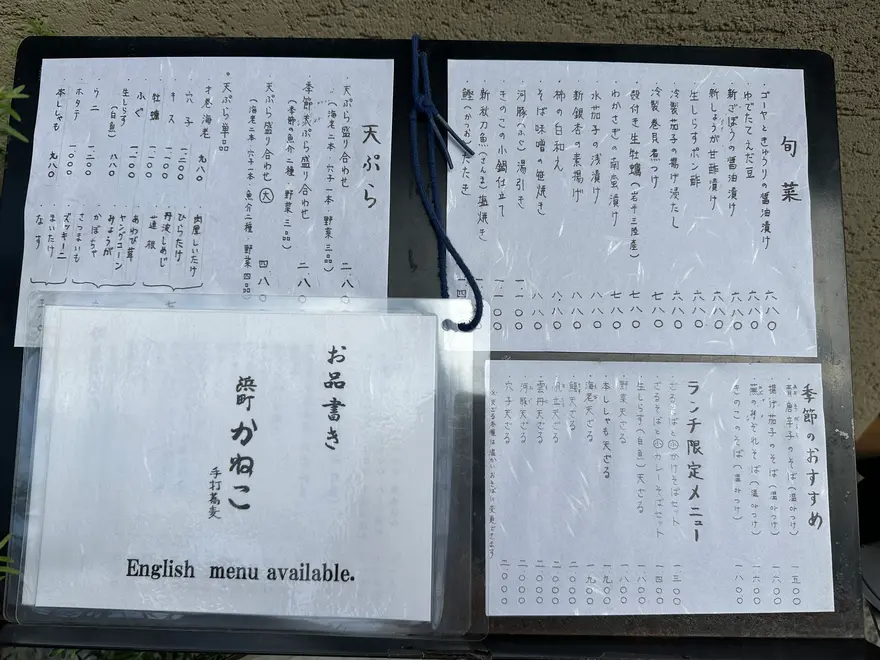 旬菜
・ゴーヤときゅうりの醤油漬け 六八〇
・ゆでたてえだ豆 六八〇
・新ごぼうの醤油漬け 六八〇
・新しょうが甘酢漬け 六八〇
・生しらすポン酢 六八〇
・冷製茄子の揚げ浸し 六八〇
・冷製巻貝煮つけ 七八〇
・殻付き生牡蠣(岩手三陸産) 七八〇
・わかさぎの南蛮漬け 七八〇
・水茄子の浅漬け 八八〇
・新銀杏の素揚げ 八八〇
・柿の白和え 八八〇
・そば味噌の笹焼き 八八〇
・きのこの小鍋仕立て 一一〇〇
・河豚(ふぐ)湯引き 一一〇〇
・新秋刀魚(さんま)塩焼き
・鰹(かつお)たたき
天ぷら
・天ぷら盛り合わせ 二八〇
(海老二本・穴子一本 野菜三品)
季節天ぷら盛り合わせ 二八〇
(季節の魚介二種・野菜三品)
天ぷら盛り合わせ(大) 四八〇
(海老二本穴子一本 魚介二種 野菜四品)
・天ぷら単品
・才巻海老 九八〇
・穴子
・キス
・牡蠣 一二〇〇
・ふぐ 一一〇〇
・生しらす(白魚) 八八〇
・ウニ 一二〇〇
・ホタテ 一〇〇〇
・本ししゃも 一〇〇〇
肉厚しいたけ
ひらたけ
丹波しめじ
蓮根
あわび茸
ヤングコーン
みょうが
かぼちゃ
さつまいも
ズッキーニ
まいたけ
なす
季節のおすすめ
・青唐辛子のそば(温かつけ) 一五〇〇
・揚げ茄子のそば(温かつけ) 一六〇〇
みぞれそば(温かつけ) 一六〇〇
・きのこのそば(温かつけ) 一八〇〇
ランチ限定メニュー
ざるそばと(小)かけそばセット 一三〇〇
ざるそばと(小)カレーそばセット 一四〇〇
・生しらす(白魚)天ざる 一八〇〇
・野菜天ざる 一八〇〇
・本ししゃも天ざる 一九〇〇
・海老天ざる 一九〇〇
天ざる 二〇〇〇
帆立天ざる 二〇〇〇
・雲丹天ざる 二〇〇〇
・河豚天ざる 二〇〇〇
・穴子天ざる 二〇〇〇
お品書き
浜町 かねこ
手打蕎麦
English menu available.